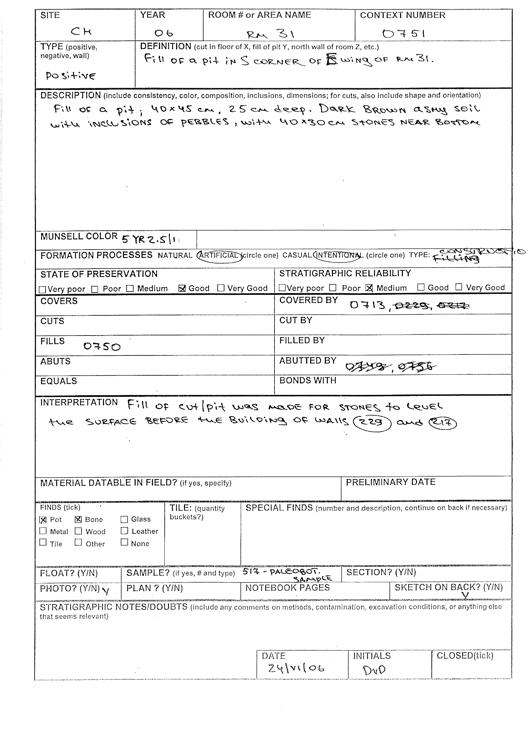 SITE YEAR ROOM # or AREA NAME CONTEXT NUMBER
CH 06 RM 31 0751
TYPE (positive, negative, wall)
POSITIVE
DEFINITION (cut in floor of X, fill of pit Y, north wall of room Z, etc.)
Fill of a pit in S CORNER OF E WING OF RM 31.
DESCRIPTION (include consistency, color, composition, inclusions, dimensions; for cuts, also include shape and orientation)
Fill of a pit; 40x45 cm, 25 cm deep. DARK BROWN ashy soil
with INCLUSIONS OF PEBBLES, with 40x30cm STONES NEAR BOTTOM
MUNSELL COLOR 5YR2.5/1
FORMATION PROCESSES NATURAL ARTIFICIAL (circle one) CASUAL INTENTIONAL (circle one) TYPE: CONSTRUCTIO
FILLING
STATE OF PRESERVATION STRATIGRAPHIC RELIABILITY
Very poor Poor Medium Good Very Good Very poor Poor Medium Good Very Good
COVERS COVERED BY 0713, 0229, 0217
CUTS CUT BY
FILLS 0750 FILLED BY
ABUTS ABUTTED BY 0756
EQUALS BONDS WITH
INTERPRETATION Fill of cut/pit was MADE FOR STONES to level
the SURFACE BEFORE the Building OF WALLS 229 and 217
MATERIAL DATABLE IN FIELD? (if yes, specify) PRELIMINARY DATE
FINDS (tick) TILE: (quantity buckets?) SPECIAL FINDS (number and description, continue on back if necessary)
Pot Bone Glass
Metal Wood Leather
Tile Other None
FLOAT? (Y/N) SAMPLE? (if yes, # and type) 517 - PALEOBOT. SAMPLE SECTION? (Y/N)
PHOTO? (Y/N) Y PLAN ? (Y/N) NOTEBOOK PAGES SKETCH ON BACK? (Y/N)
Y
STRATIGRAPHIC NOTES/DOUBTS (include any comments on methods, contamination, excavation conditions, or anything else
that seems relevant)
DATE INITIALS CLOSED(tick)
24/VI/06 DvD